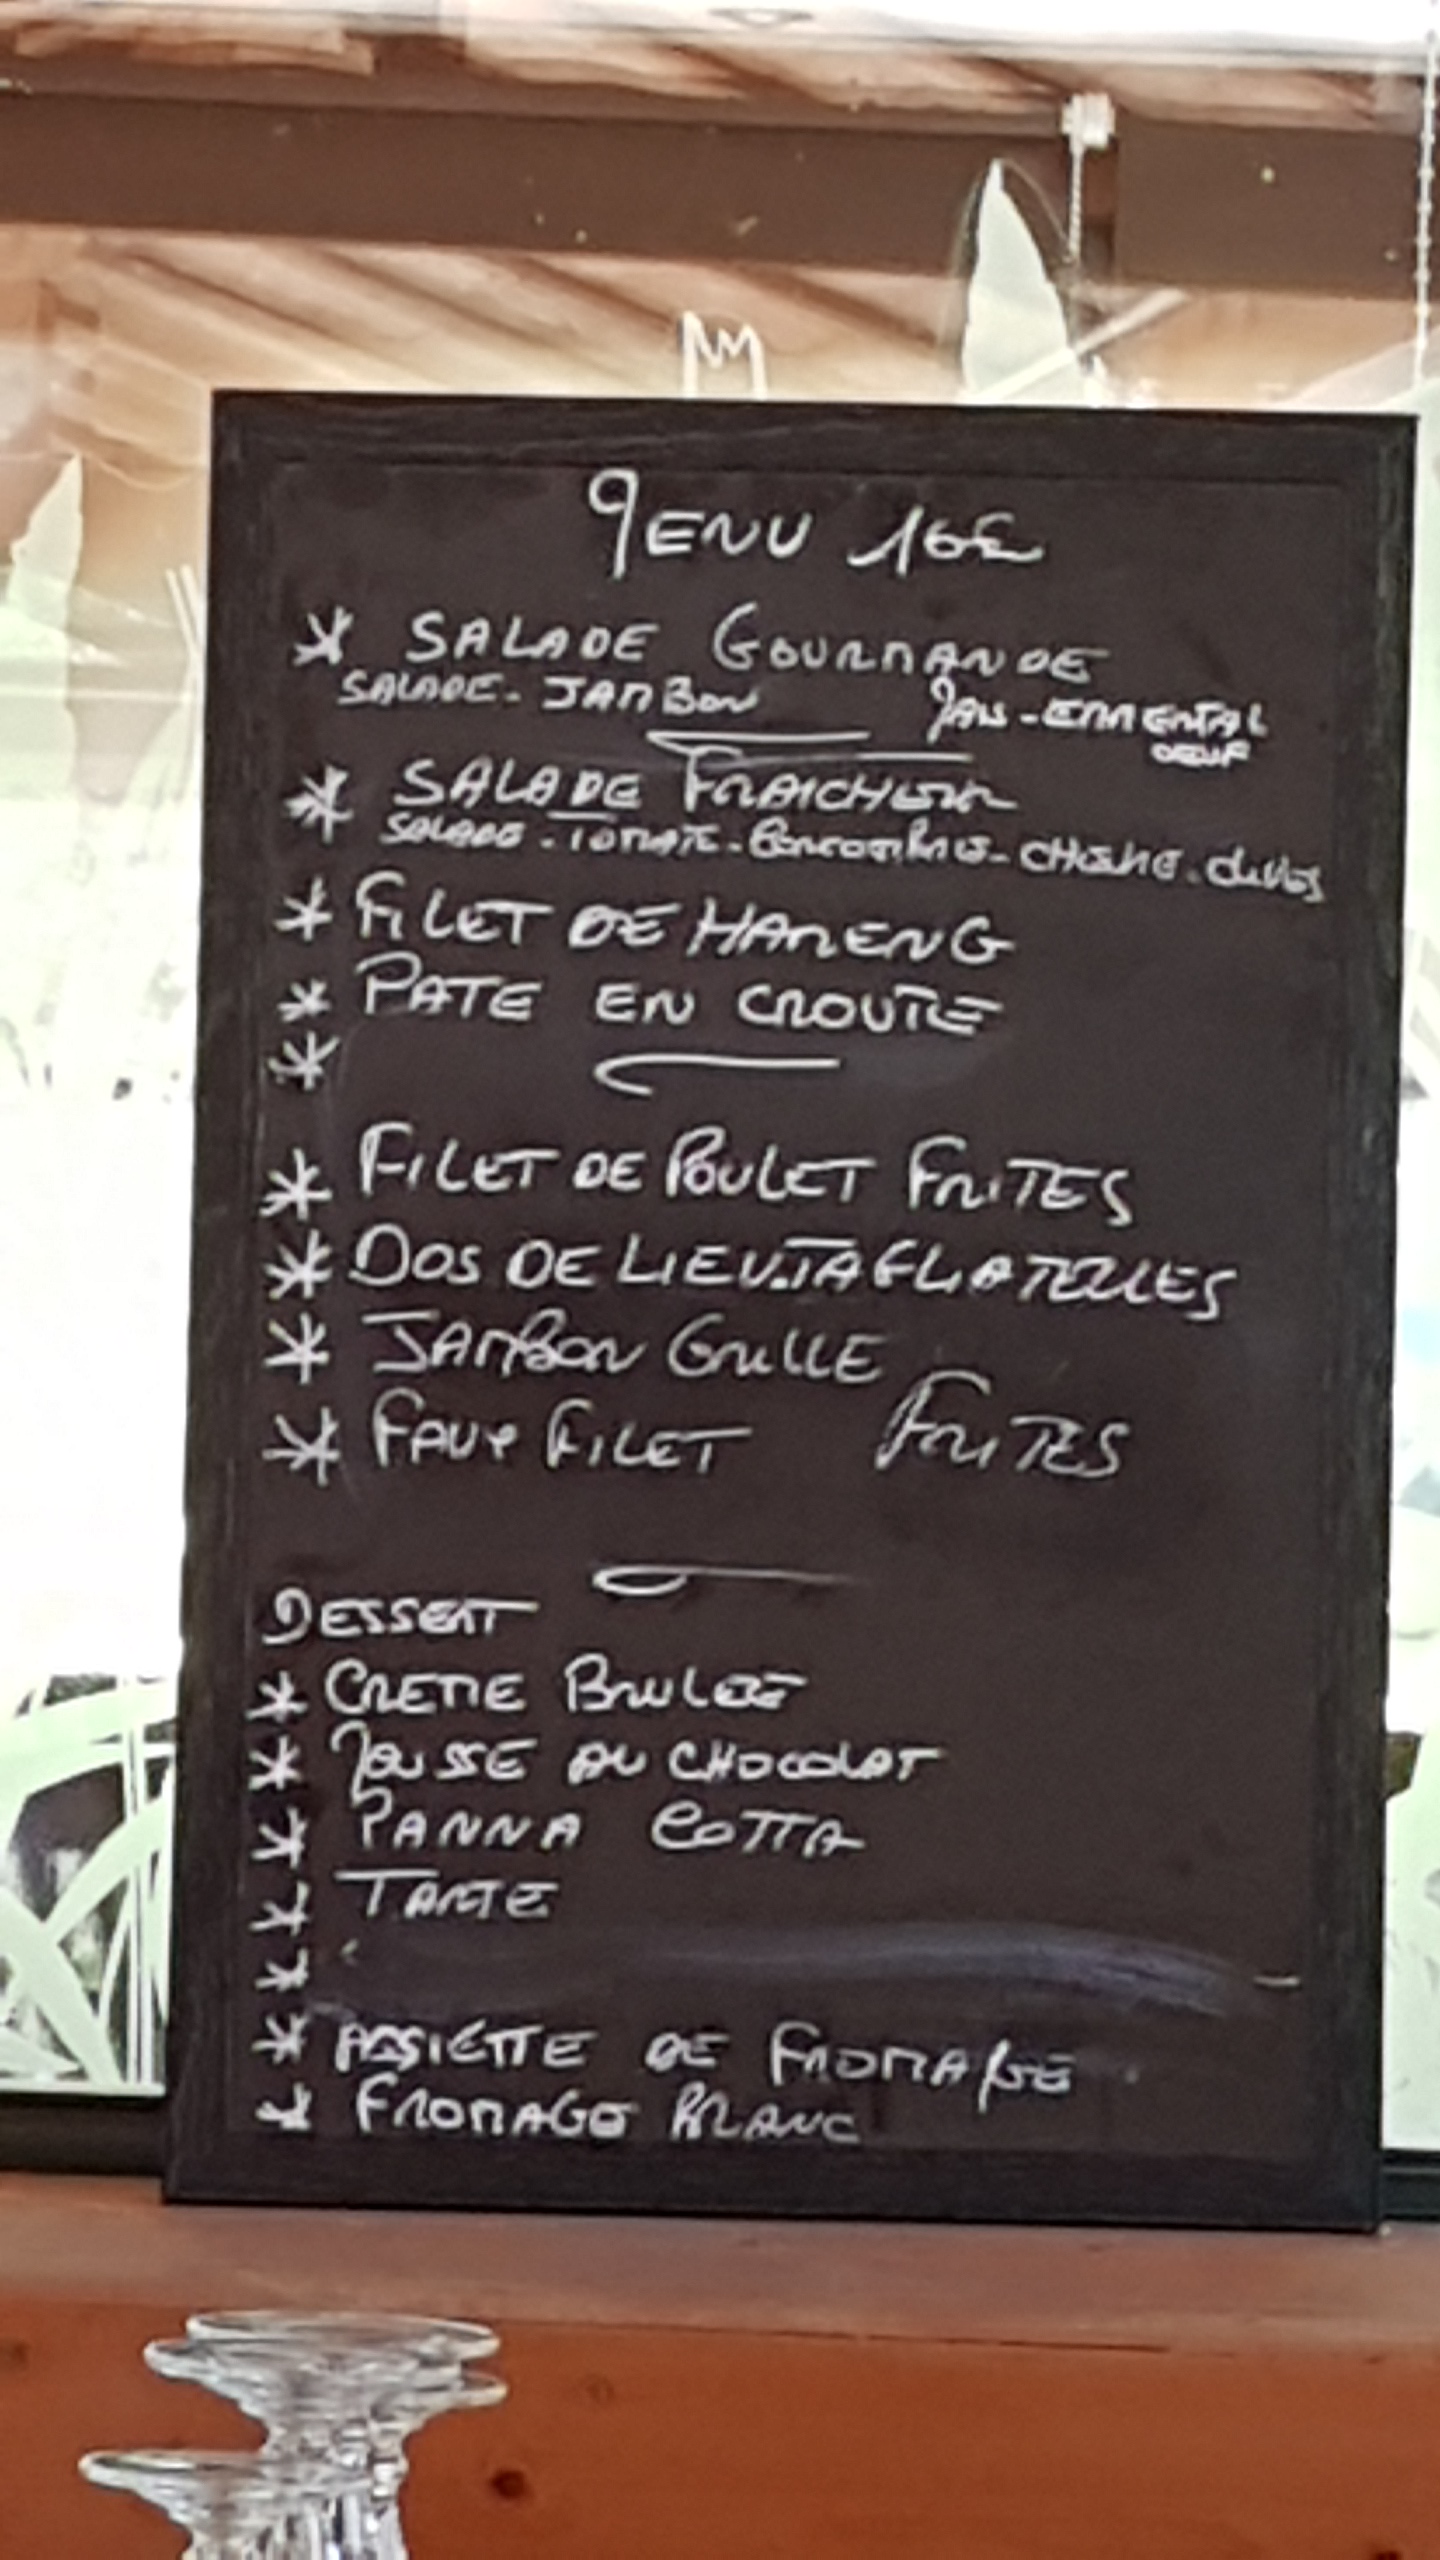 MENU 16€
* SALADE GOURMANDE
SALADE - JAMBON MAIS - EMMENTAL
OEUF
* SALADE FRAICHEUR
SALADE - TOMATE - CONCOMBRE - CHEVRE - OLIVES
* FILET DE HARENG
* PATE EN CROUTE
*
* FILET DE POULET FRITES
* DOS DE LIEU.TAGLIATELLES
* JAMBON GRILLE
* FAUX FILET FRITES
DESSERT
* CREME BRULEE
* MOUSSE AU CHOCOLAT
* PANNA COTTA
* TARTE
*
* ASSIETTE DE FROMAGE
* FROMAGE BLANC